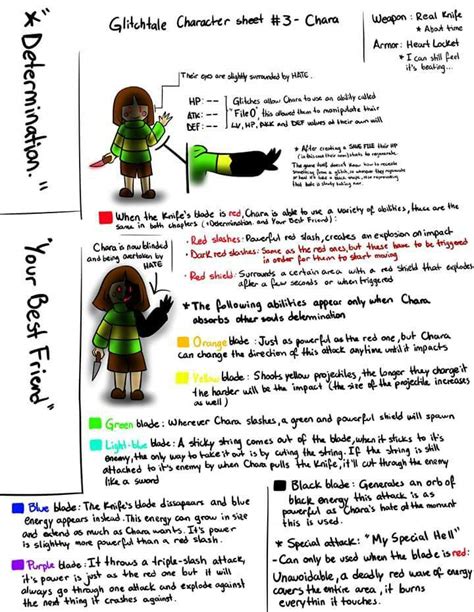 Glitchtale Character sheet #3 - Chara
Weapon: Real Knife
* About time
Armor: Heart Locket
* I can still feel
it's beating...
*"Determination."
Their eyes are slightly surrounded by HATE
HP: --
ATK: --
DEF: --
Glitches allow Chara to use an ability called
"File 0", this allowed them to manipulate their
LV, HP, ATK and DEF values at their own will
* After creating a SAVE FILE their HP
When the Knife's blade is red, Chara is able to use a variety of abilities, these are the
same in both chapters (*Determination and Your Best Friend):
"Your Best Friend"
Chara is now blinded
and being overtaken by
HATE
• Red slashes: Powerful red slash, creates an explosion on impact
• Dark red slashes: Same as the red ones, but these have to be triggered
in order for them to start moving
• Red shield: Surrounds a certain area with a red shield that explodes
after a few seconds or when triggered
* The following abilities appear only when Chara
absorbs other souls determination
Orange blade: Just as powerful as the red one, but Chara
can change the direction of this attack anytime until it impacts
Yellow blade: Shoots yellow projectiles, the longer they charge it
the harder will be the impact (the size of the projectile increases
as well)
Green blade: Wherever Chara slashes, a green and powerful shield will spawn
Light-blue blade: A sticky string comes out of the blade, when it sticks to it's
enemy, the only way to take it out is by cuting the string. If the string is still
attached to it's enemy when Chara pulls the Knife, it'll cut through the enemy
like a sword
Blue blade: The Knife's blade dissapears and blue
energy appears instead. This energy can grow in size
and extend as much as Chara wants. It's power
is slightly more powerful than a red slash.
Purple blade: It throws a triple-slash attack,
it's power is just as the red one but it will
always go through one attack and explode against
the next thing it crashes against.
Black blade: Generates an orb of
black energy this attack is as
powerful as Chara's hate at the moment
this is used.
* Special attack: "My Special Hell"
-Can only be used when the blade is red:
Unavoidable, a deadly red wave of energy
covers the entire area, it burns
everything it touches.